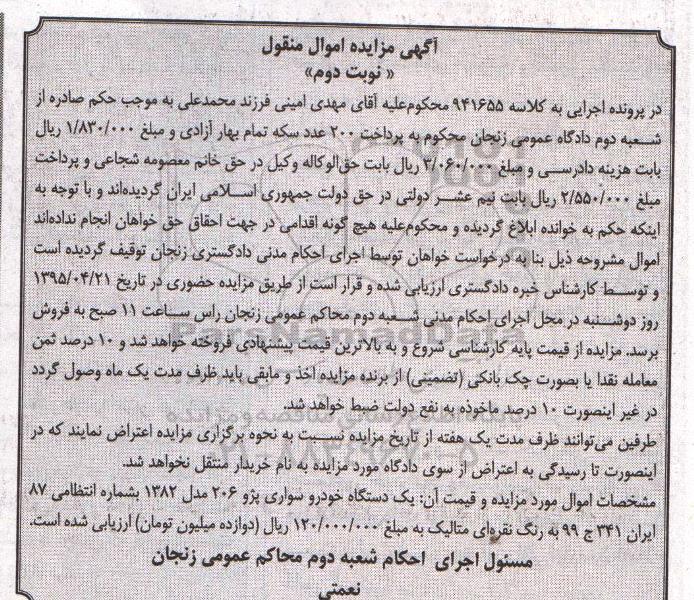 آگهی مزایده اموال منقول
« نوبت دوم»
در پرونده اجرایی به کلاسه ۹۴۱۶۵۵ محکوم‌علیه آقای مهدی امینی فرزند محمدعلی به موجب حکم صادره از
شعبه دوم دادگاه عمومی زنجان محکوم به پرداخت ۲۰۰ عدد سکه تمام بهار آزادی و مبلغ ۱/۸۳۰/۰۰۰ ریال
بابت هزینه دادرسی و مبلغ ۳/۰۶۰/۰۰۰ ریال بابت حق‌الوکاله وکیل در حق خانم معصومه شجاعی و پرداخت
مبلغ ۲/۵۵۰/۰۰۰ ریال بابت نیم عشر دولتی در حق دولت جمهوری اسلامی ایران گردیده‌اند و با توجه به
اینکه حکم به خوانده ابلاغ گردیده و محکوم‌علیه هیچ گونه اقدامی در جهت احقاق حق خواهان انجام نداده‌اند
اموال مشروحه ذیل بنا به درخواست خواهان توسط اجرای احکام مدنی دادگستری زنجان توقیف گردیده است
و توسط کارشناس خبره دادگستری ارزیابی شده و قرار است از طریق مزایده حضوری در تاریخ ۱۳۹۵/۰۴/۲۱
روز دوشنبه در محل اجرای احکام مدنی شعبه دوم محاکم عمومی زنجان راس ساعت ۱۱ صبح به فروش
برسد. مزایده از قیمت پایه کارشناسی شروع و به بالاترین قیمت پیشنهادی فروخته خواهد شد و ۱۰ درصد ثمن
معامله نقدا یا بصورت چک بانکی (تضمینی) از برنده مزایده اخذ و مابقی باید ظرف مدت یک ماه وصول گردد
در غیر اینصورت ۱۰ درصد ماخوذه به نفع دولت ضبط خواهد شد.
طرفین می‌توانند ظرف مدت یک هفته از تاریخ مزایده نسبت به نحوه برگزاری مزایده اعتراض نمایند که در
اینصورت تا رسیدگی به اعتراض از سوی دادگاه مورد مزایده به نام خریدار منتقل نخواهد شد.
مشخصات اموال مورد مزایده و قیمت آن: یک دستگاه خودرو سواری پژو ۲۰۶ مدل ۱۳۸۲ بشماره انتظامی ۸۷
ایران ۳۴۱ ج ۹۹ به رنگ نقره‌ای متالیک به مبلغ ۱۲۰/۰۰۰/۰۰۰ ریال (دوازده میلیون تومان) ارزیابی شده است.
مسئول اجرای احکام شعبه دوم محاکم عمومی زنجان
نعمتی
ParsNamadData